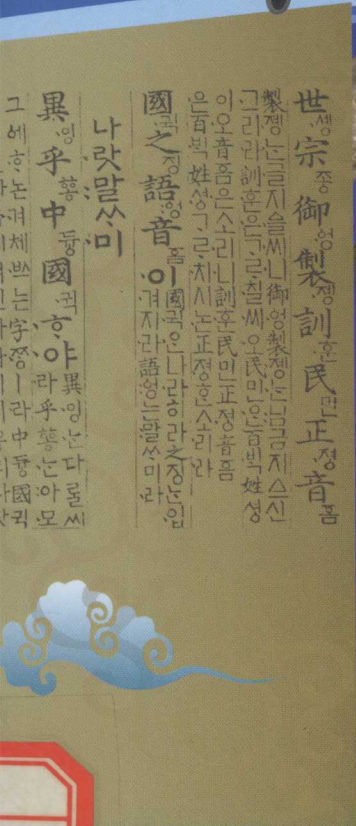 世솅宗종御엉製젱訓훈民민正졍音흠
製젱는글지슬씨니御엉製젱는님금지ᅀᅳ신
그리라訓훈은ᄀᆞᄅᆞ칠씨오民민은百ᄇᆡᆨ姓셩
이오音흠은소리니訓훈民민正졍音흠
은百ᄇᆡᆨ姓셩ᄀᆞᄅᆞ치시논正졍ᄒᆞᆫ소리라
國귁之징語엉音흠이國귁은나라히라之징ᄂᆞᆫ입
겨지라語엉는말ᄊᆞ미라
나랏말ᄊᆞ미
異잉乎ᅘᅩᆼ中듕國귁ᄒᆞ야異잉ᄂᆞᆫ다ᄅᆞᆯ씨
라乎ᅘᅩᆼᄂᆞᆫ아모
그에ᄒᆞ논겨체ᄡᅳ는字ᄍᆞᆼㅣ라中듕國귁